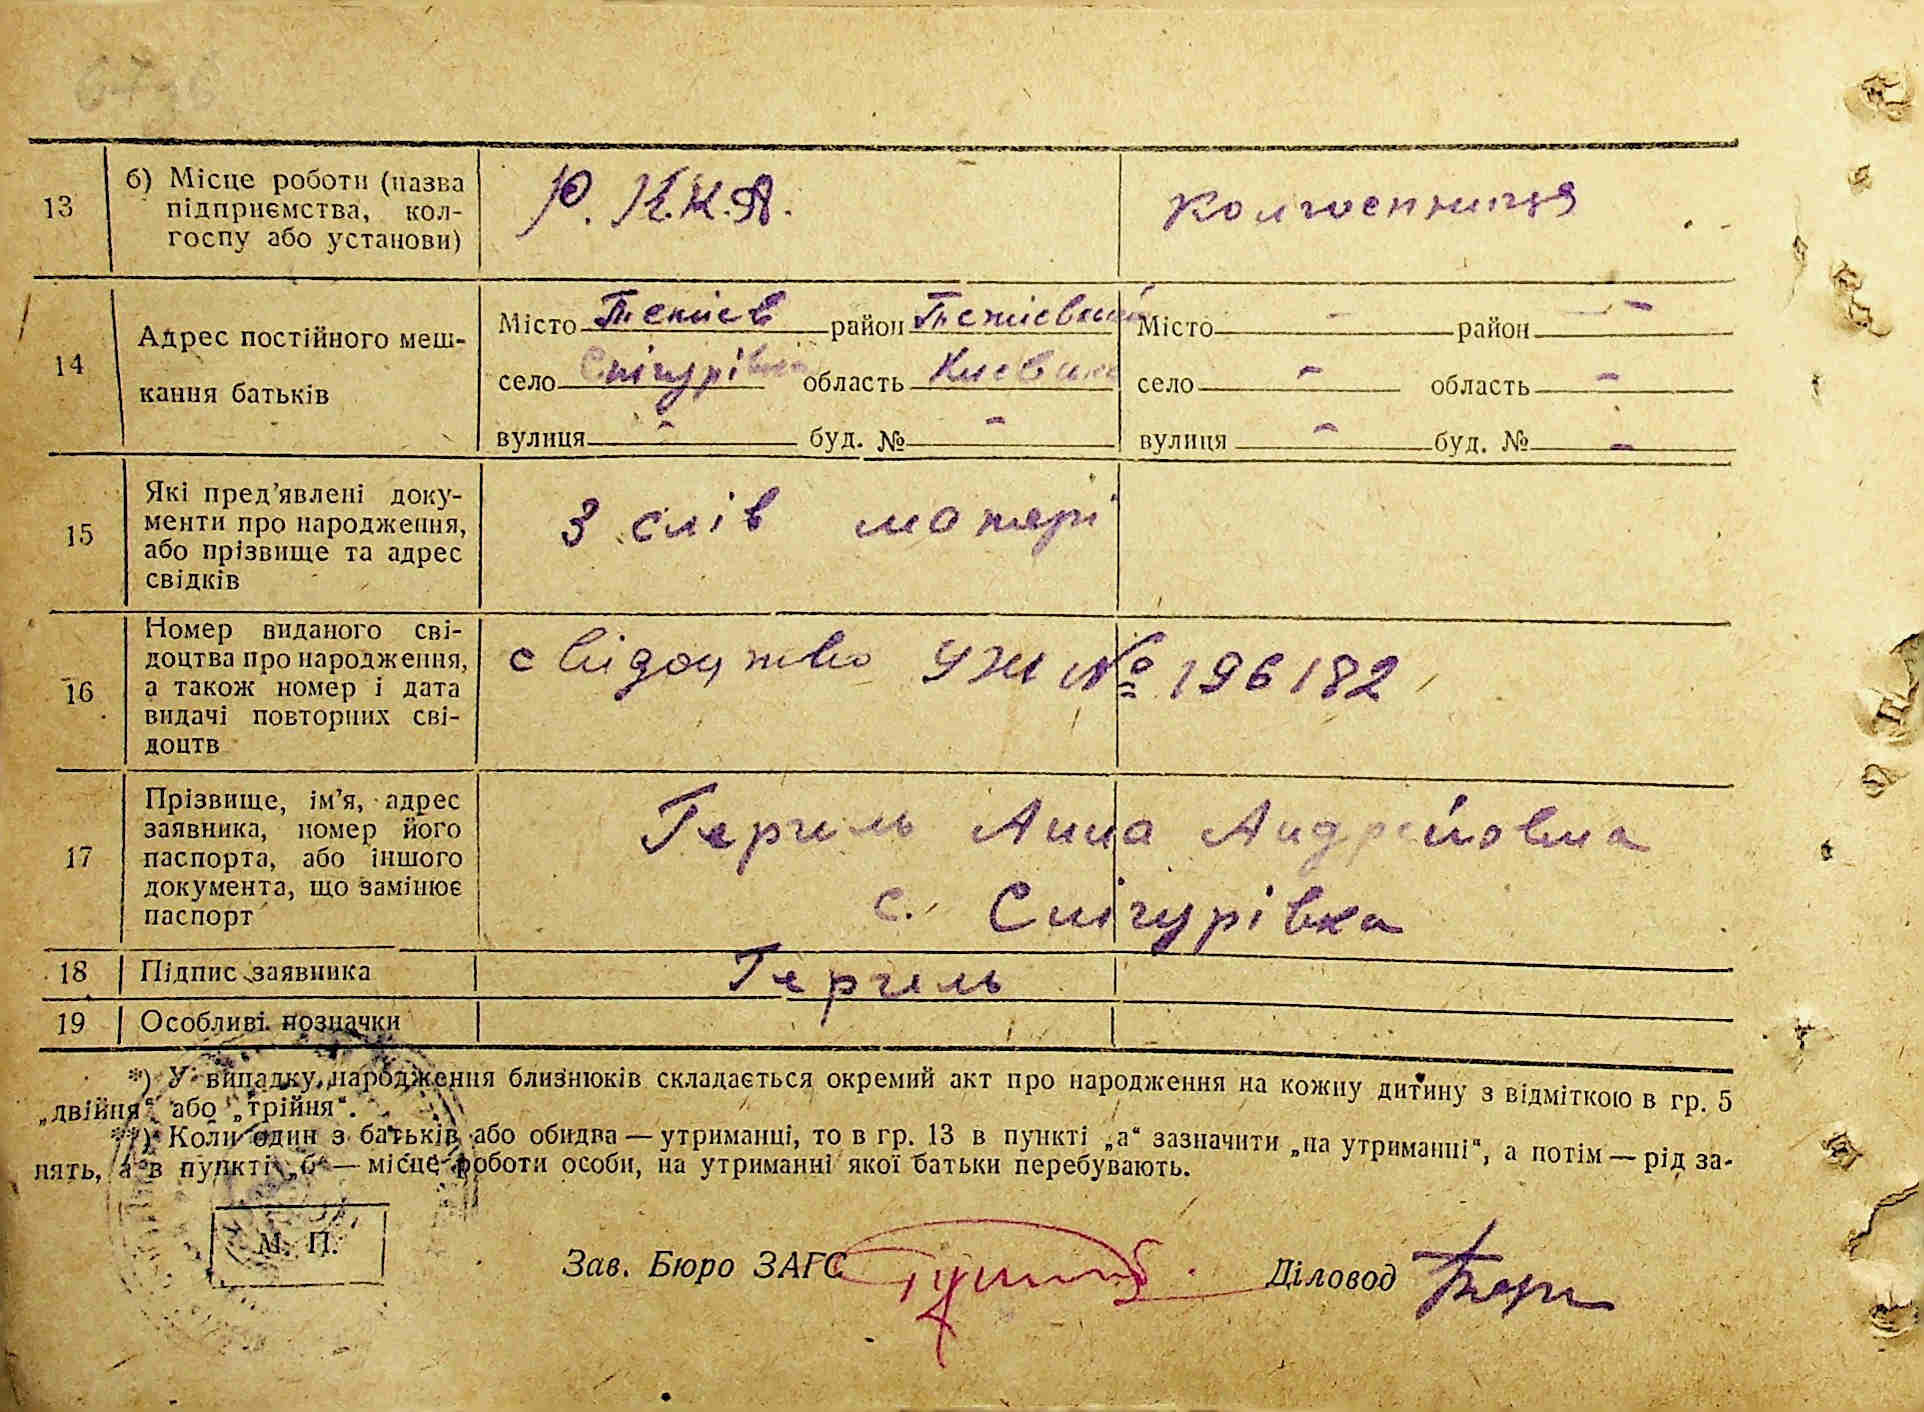 13 б) Місце роботи (назва підприємства, кол-госпу або установи) Р.К.К.А. колгоспниця
14 Адрес постійного меш-кання батьків
Місто Тетіев район Тетіевский Місто - район -
село Снігурівка область Києвська село - область -
вулиця - буд. № - вулиця - буд. № -
15 Які пред’явлені доку-менти про народження, або прізвище та адрес свідків З слів матері
16 Номер виданого сві-доцтва про народження, а також номер і дата видачі повторних сві-доцтв свідоцтво УЖ № 196182
17 Прізвище, ім’я, адрес заявника, номер його паспорта, або іншого документа, що замінює паспорт Анна Андрейовна
с. Снігурівка
18 Підпис заявника
19 Особливі позначки
*) У випадку народження близнюків складається окремий акт про народження на кожну дитину з відміткою в гр. 5
„двійня“ або „трійня“.
**) Коли один з батьків або обидва — утриманці, то в гр. 13 в пункті „а“ зазначити „на утриманні“, а потім — рід за-
нять, а в пункті „б“ — місце роботи особи, на утриманні якої батьки перебувають.
М. П.
Зав. Бюро ЗАГС Діловод